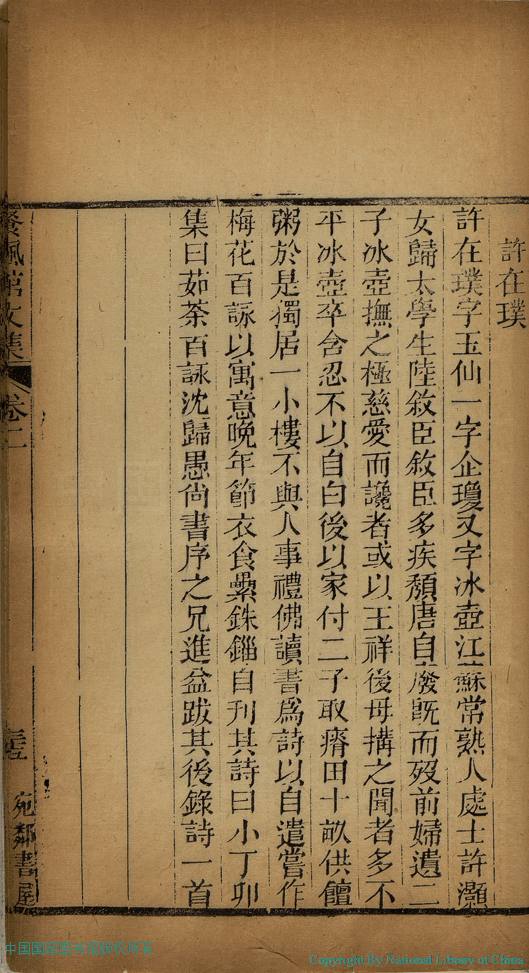 許在璞
許在璞字玉仙一字企瓊又字冰壺江蘇常熟人處士許灝
女歸太學生陸敘臣敘臣多疾頽唐自廢旣而歿前婦遺二
子冰壺撫之極慈愛而讒者或以王祥後母搆之聞者多不
平冰壺卒含忍不以自白後以家付二子取瘠田十畝供饘
粥於是獨居一小樓不與人事禮佛讀書爲詩以自遣嘗作
梅花百詠以寓意晚年節衣食纍銖錙自刋其詩曰小丁卯
集曰茹荼百詠沈歸愚尙書序之兄進益跋其後錄詩一首
餐楓館文集 卷二
宛鄰書屋
中国国家图书馆
Copyright By National Library of China